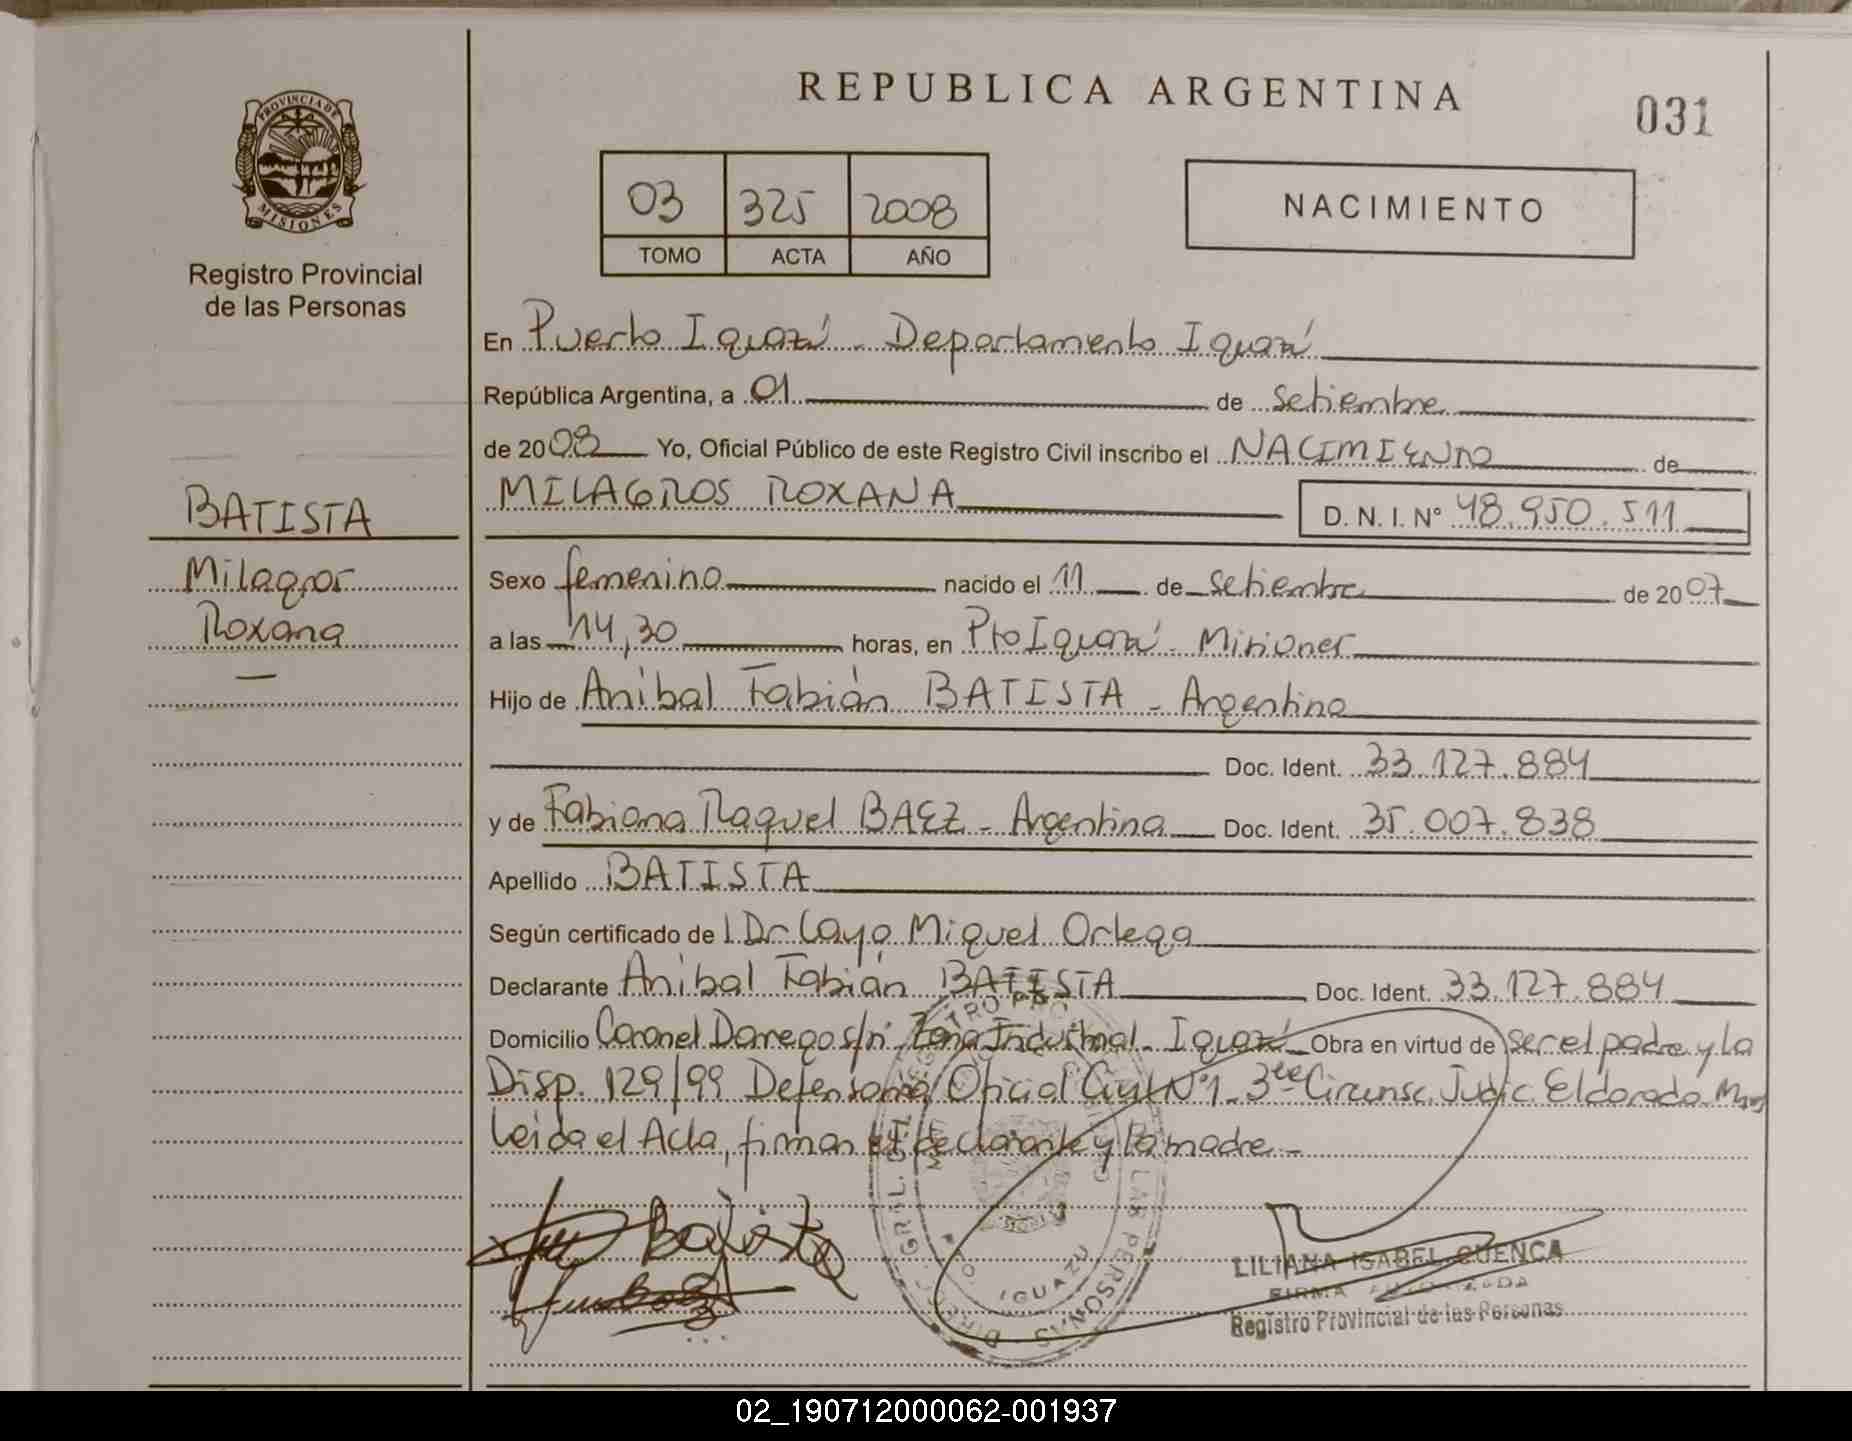 REPUBLICA ARGENTINA
031
PROVINCIA DE
MISIONES
Registro Provincial
de las Personas
03 325 2008
TOMO ACTA AÑO
NACIMIENTO
En Puerto Iguazú - Departamento Iguazú
República Argentina, a 01 de setiembre
de 2008 Yo, Oficial Público de este Registro Civil inscribo el NACIMIENTO de
MILAGROS ROXANA D. N. I. Nº 48.950.511
BATISTA
Milagros
Roxana
Sexo femenino nacido el 11 de setiembre de 2007
a las 14,30 horas, en Pto Iguazú - Misiones
Hijo de Aníbal Fabián BATISTA - Argentino
Doc. Ident. 33.127.884
y de Fabiana Raquel BAEZ - Argentina Doc. Ident. 35.007.838
Apellido BATISTA
Según certificado de l Dr Cayo Miguel Ortega
Declarante Aníbal Fabián BATISTA Doc. Ident. 33.127.884
Domicilio Coronel Dorrego s/nº Zona Industrial - Iguazú - Obra en virtud de ser el padre y la
Disp. 129/99 Defensoria Oficial Civil Nº1 - 3ra Circunsc. Judic. Eldorado Mnes
Leída el Acta, firman el declarante y la madre -
Batista
IGUAZU
LAS PERSONAS
LILIANA ISABEL CUENCA
FIRMA AUTORIZADA
Registro Provincial de las Personas
02_190712000062-001937